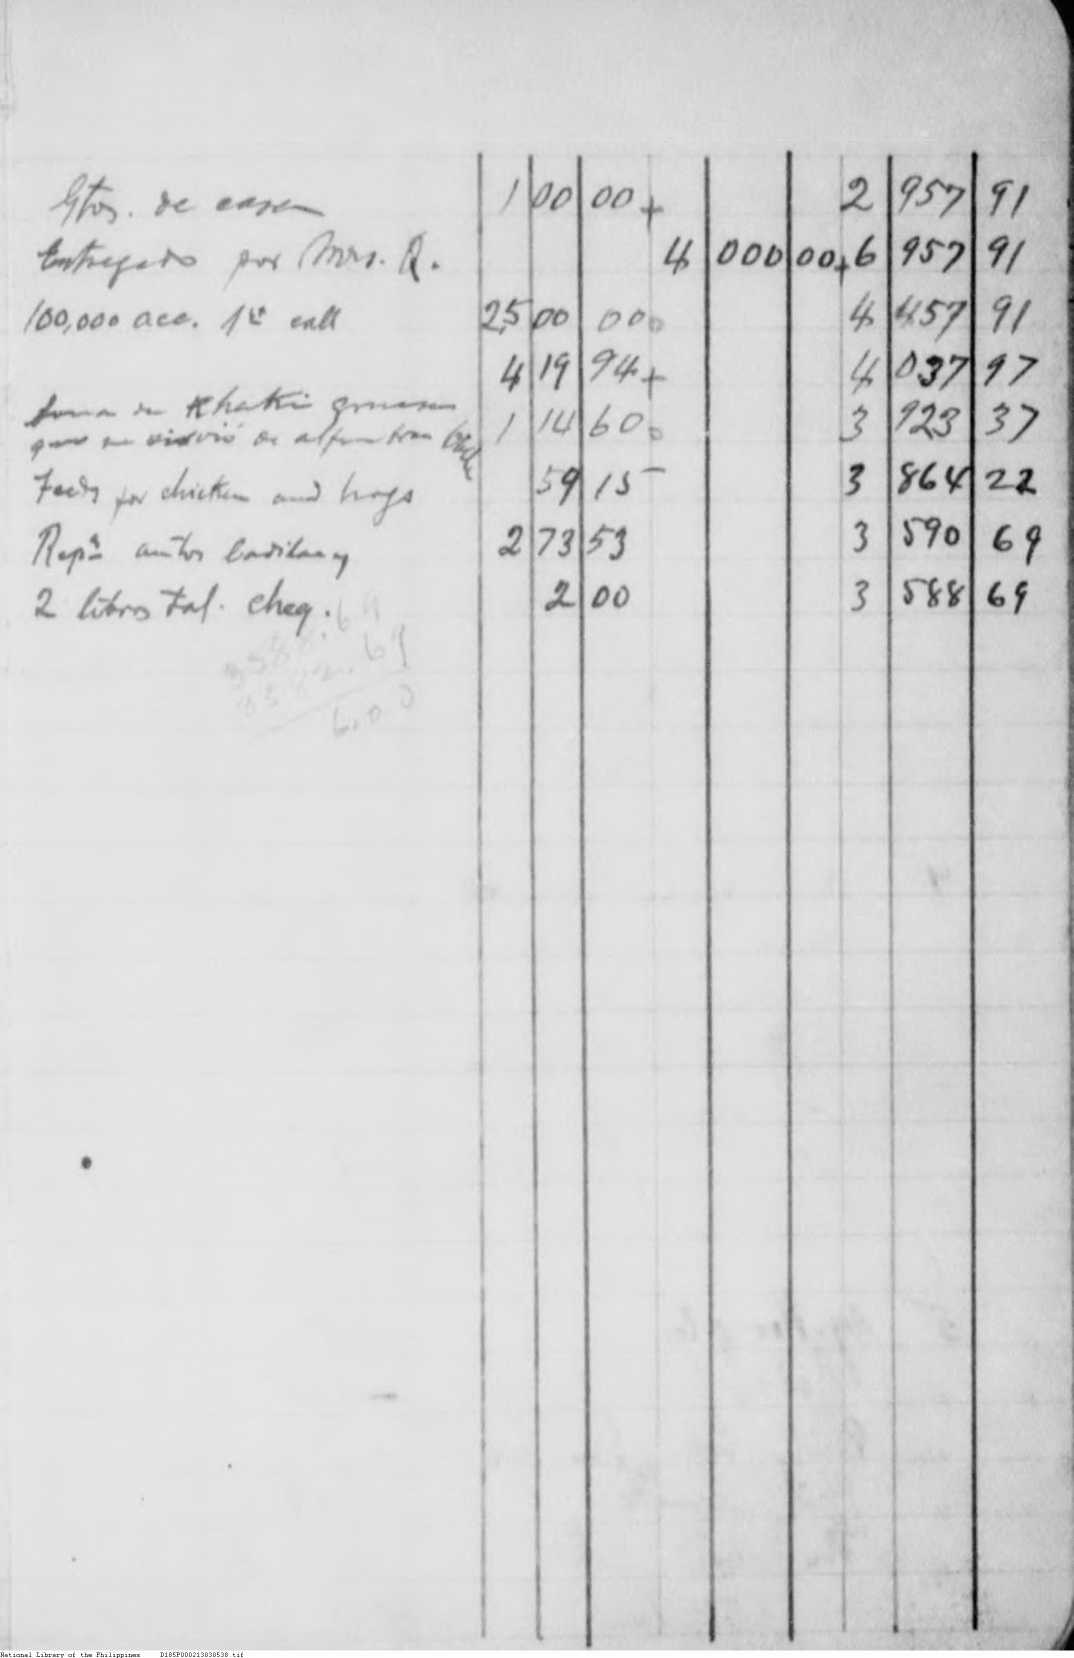 Gtos. de casa 1 00 00+ 2 957 91
Entregado por Mrs. Q. 4 000 00+ 6 957 91
100,000 acc. 1st call 25 00 00o 4 457 91
4 19 94+ 4 037 97
Lona de Khaki gruesa
que se sirvió de alfombra 1 14 60o 3 923 37
Feeds for chicken and hogs 59 15- 3 864 22
Repn autos Cadillac y 2 73 53 3 590 69
2 libros tal. cheq. 2 00 3 588 69
3588.69
3582.69
6.00
National Library of the Philippines D185P000213038538.tif